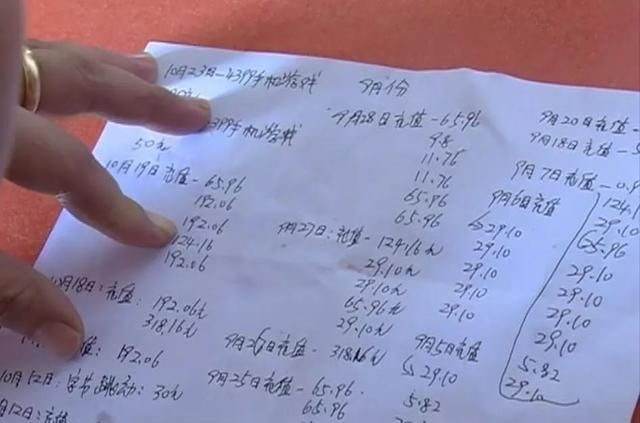 10月23日-4399手机游戏
4399手机游戏
50元
10月19日充值-65.96
192.06
192.06
124.16
192.06
10月18日:充值:192.06元
318.16元
值:192.06
10月12日:字节跳动:30元
月12日:充值
9月份
9月28日充值-65.96
9.8
11.76
11.76
65.96
65.96
9月27日:充值-124.16元
29.10元
29.10元
65.96元
29.10元
9月26日充值-318.16元
9月25日充值-65.96
65.96
9月20日充值
9月18日充值-5
9月7日充值-0.9
9月6日充值
29.10
29.10
29.10
29.10
29.10
9月5日充值
29.10
5.82
124.1
29.10
65.96
29.10
29.10
29.10
29.10
5.82
29.10